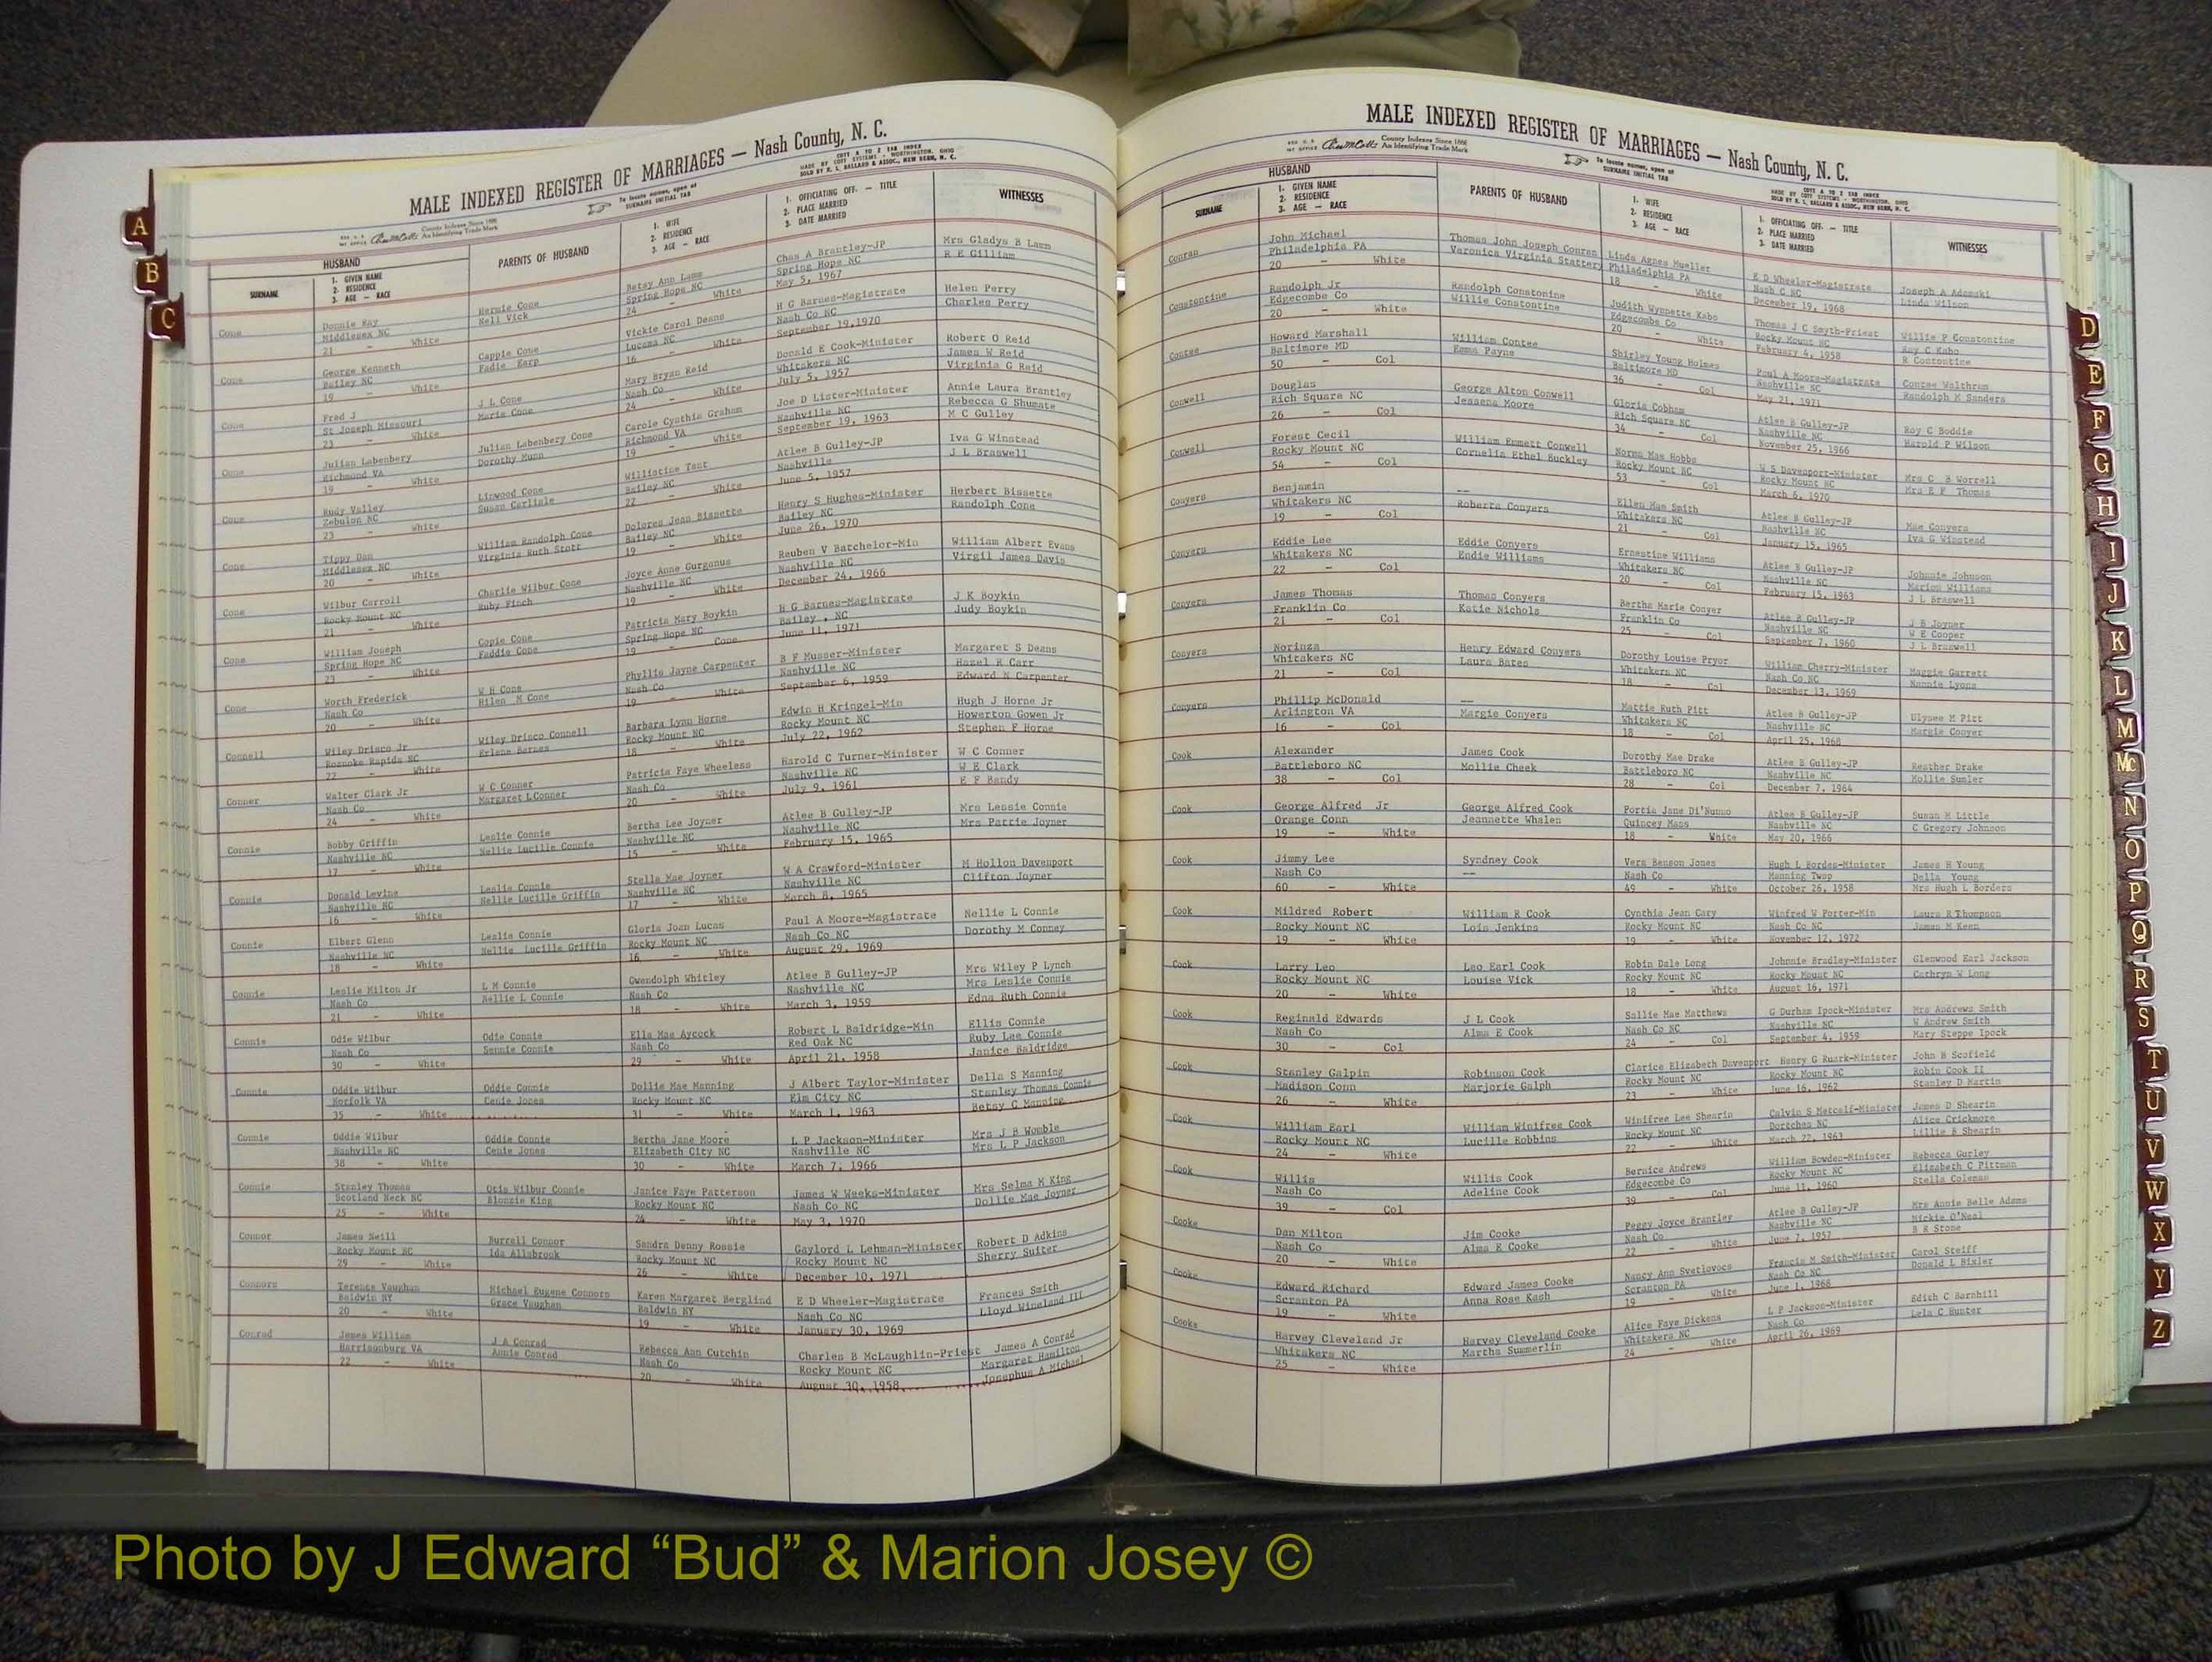 MALE INDEXED REGISTER OF MARRIAGES — Nash County, N. C.
County Indexes Since 1888
An Identifying Trade Mark
To locate names, open at
SURNAME INITIAL TAB
COTT A TO Z TAB INDEX
MADE BY COTT SYSTEMS - WORTHINGTON, OHIO
SOLD BY R. L. BALLARD & ASSOC., NEW BERN, N. C.
HUSBAND
SURNAME
1. GIVEN NAME
2. RESIDENCE
3. AGE — RACE
PARENTS OF HUSBAND
1. WIFE
2. RESIDENCE
3. AGE — RACE
1. OFFICIATING OFF. — TITLE
2. PLACE MARRIED
3. DATE MARRIED
WITNESSES
Cone Donnie Ray Hermie Cone Betsy Ann Lamm Chas A Brantley-JP Mrs Gladys B Lamm
Middlesex NC Nell Vick Spring Hope NC Spring Hope NC R E Gilliam
21 - White 24 - White May 5, 1967
Cone George Kenneth Cappie Cone Vickie Carol Deans H G Barnes-Magistrate Helen Perry
Bailey NC Fadie Earp Lucama NC Nash Co NC Charles Perry
19 - White 16 - White September 19,1970
Cone Fred J J L Cone Mary Bryan Reid Donald E Cook-Minister Robert O Reid
St Joseph Missouri Marie Cone Nash Co Whitakers NC James W Reid
23 - White 24 - White July 5, 1957 Virginia G Reid
Cone Julian Labenbery Julian Labenbery Cone Carole Cynthia Graham Joe D Lister-Minister Annie Laura Brantley
Richmond VA Dorothy Munn Richmond VA Nashville NC Rebecca G Shumate
19 - White 19 - White September 19, 1963 M C Gulley
Cone Rudy Valley Linwood Cone Williatine Tant Atlee B Gulley-JP Iva G Winstead
Zebulon NC Susan Carlisle Bailey NC Nashville J L Braswell
23 - White 22 - White June 5, 1957
Cone Tippy Dan William Randolph Cone Dolores Jean Bissette Henry S Hughes-Minister Herbert Bissette
Middlesex NC Virginia Ruth Stott Bailey NC Bailey NC Randolph Cone
20 - White 19 - White June 26, 1970
Cone Wilbur Carroll Charlie Wilbur Cone Joyce Anne Gurganus Reuben V Batchelor-Min William Albert Evans
Rocky Mount NC Ruby Finch Nashville NC Nashville NC Virgil James Davis
21 - White 19 - White December 24, 1966
Cone William Joseph Copie Cone Patricia Mary Boykin H G Barnes-Magistrate J K Boykin
Spring Hope NC Faddie Cone Spring Hope NC Bailey , NC Judy Boykin
23 - White 19 - Cone June 11, 1971
Cone Worth Frederick W H Cone Phyllis Jayne Carpenter B F Musser-Minister Margaret S Deans
Nash Co Hilen M Cone Nash Co Nashville NC Hazel R Carr
20 - White 19 - White September 6, 1959 Edward N Carpenter
Connell Wiley Drisco Jr Wiley Drisco Connell Barbara Lynn Horne Edwin H Kringel-Min Hugh J Horne Jr
Roanoke Rapids NC Erlene Barnes Rocky Mount NC Rocky Mount NC Howerton Gowen Jr
22 - White 18 - White July 22, 1962 Stephen F Horne
Conner Walter Clark Jr W C Conner Patricia Faye Wheeless Harold C Turner-Minister W C Conner
Nash Co Margaret L Conner Nash Co Nashville NC W E Clark
24 - White 20 - White July 9, 1961 E F Bandy
Connie Bobby Griffin Leslie Connie Bertha Lee Joyner Atlee B Gulley-JP Mrs Lessie Connie
Nashville NC Nellie Lucille Connie Nashville NC Nashville NC Mrs Pattie Joyner
17 - White 15 - White February 15, 1965
Connie Donald Levine Leslie Connie Stella Mae Joyner W A Crawford-Minister M Hollon Davenport
Nashville NC Nellie Lucille Griffin Nashville NC Nashville NC Clifton Joyner
16 - White 17 - White March 8, 1965
Connie Elbert Glenn Leslie Connie Gloria Joan Lucas Paul A Moore-Magistrate Nellie L Connie
Nashville NC Nellie Lucille Griffin Rocky Mount NC Nash Co NC Dorothy M Conney
18 - White 16 - White August 29, 1969
Connie Leslie Milton Jr L M Connie Gwendolph Whitley Atlee B Gulley-JP Mrs Wiley P Lynch
Nash Co Nellie L Connie Nash Co Nashville NC Mrs Leslie Connie
21 - White 18 - White March 3, 1959 Edna Ruth Connie
Connie Odie Wilbur Odie Connie Ella Mae Aycock Robert L Baldridge-Min Ellis Connie
Nash Co Sennie Connie Nash Co Red Oak NC Ruby Lee Connie
30 - White 29 - White April 21, 1958 Janice Baldridge
Connie Oddie Wilbur Oddie Connie Dollie Mae Manning J Albert Taylor-Minister Della S Manning
Norfolk VA Cenie Jones Rocky Mount NC Elm City NC Stanley Thomas Connie
35 - White 31 - White March 1, 1963 Betsy C Manning
Connie Oddie Wilbur Oddie Connie Bertha Jane Moore L P Jackson-Minister Mrs J B Womble
Nashville NC Cenie Jones Elizabeth City NC Nashville NC Mrs L P Jackson
38 - White 30 - White March 7, 1966
Connie Stanley Thomas Otis Wilbur Connie Janice Faye Patterson James W Weeks-Minister Mrs Selma K King
Scotland Neck NC Blonzie King Rocky Mount NC Nash Co NC Dollie Mae Joyner
25 - White 24 - White May 3, 1970
Connor James Neill Burrell Connor Sandra Denny Rossie Gaylord L Lehman-Minister Robert D Adkins
Rocky Mount NC Ida Allsbrook Rocky Mount NC Rocky Mount NC Sherry Suiter
29 - White 26 - White December 10, 1971
Connors Terence Vaughan Michael Eugene Connors Karen Margaret Berglind E D Wheeler-Magistrate Frances Smith
Baldwin NY Grace Vaughan Baldwin NY Nash Co NC Lloyd Wineland III
20 - White 19 - White January 30, 1969
Conrad James William J A Conrad Rebecca Ann Cutchin Charles B McLaughlin-Priest James A Conrad
Harrisonburg VA Annie Conrad Nash Co Rocky Mount NC Margaret Hamilton
22 - White 20 - White August 30, 1958 Josephus A Michael
MALE INDEXED REGISTER OF MARRIAGES — Nash County, N. C.
County Indexes Since 1888
An Identifying Trade Mark
To locate names, open at
SURNAME INITIAL TAB
COTT A TO Z TAB INDEX
MADE BY COTT SYSTEMS - WORTHINGTON, OHIO
SOLD BY R. L. BALLARD & ASSOC., NEW BERN, N. C.
HUSBAND
SURNAME
1. GIVEN NAME
2. RESIDENCE
3. AGE — RACE
PARENTS OF HUSBAND
1. WIFE
2. RESIDENCE
3. AGE — RACE
1. OFFICIATING OFF. — TITLE
2. PLACE MARRIED
3. DATE MARRIED
WITNESSES
Conran John Michael Thomas John Joseph Conran Linda Agnes Mueller E D Wheeler-Magistrate Joseph A Adamski
Philadelphia PA Veronica Virginia Stattery Philadelphia PA Nash C NC Linda Wilson
20 - White 18 - White December 19, 1968
Constontine Randolph Jr Randolph Constonine Judith Wynnette Kabo Thomas J C Smyth-Priest Willie P Constontine
Edgecombe Co Willie Constontine Edgecombe Co Rocky Mount NC Roy C Kabo
20 - White 20 - White February 4, 1958 R Contontine
Contee Howard Marshall William Contee Shirley Young Holmes Paul A Moore-Magistrate Contee Walthrem
Baltimore MD Emma Payne Baltimore MD Nashville NC Randolph K Sanders
50 - Col 36 - Col May 21, 1971
Conwell Douglas George Alton Conwell Gloria Cobham Atlee B Gulley-JP Roy C Boddie
Rich Square NC Jessena Moore Rich Square NC Nashville NC Harold P Wilson
26 - Col 34 - Col November 25, 1966
Conwell Forest Cecil William Emmett Conwell Norma Mae Hobbs W S Davenport-Minister Mrs C B Worrell
Rocky Mount NC Cornelia Ethel Buckley Rocky Mount NC Rocky Mount NC Mrs E F Thomas
54 - Col 53 - Col March 6, 1970
Conyers Benjamin -- Ellen Mae Smith Atlee B Gulley-JP Mae Conyers
Whitakers NC Roberta Conyers Whitakers NC Nashville NC Iva G Winstead
19 - Col 21 - Col January 15, 1965
Conyers Eddie Lee Eddie Conyers Ernestine Williams Atlee B Gulley-JP Johnnie Johnson
Whitakers NC Endie Williams Whitakers NC Nashville NC Marion Williams
22 - Col 20 - Col February 15, 1963 J L Braswell
Conyers James Thomas Thomas Conyers Bertha Marie Conyer Atlee B Gulley-JP J B Joyner
Franklin Co Katie Nichols Franklin Co Nashville NC W E Cooper
21 - Col 25 - Col September 7, 1960 J L Braswell
Conyers Norinza Henry Edward Conyers Dorothy Louise Pryor William Cherry-Minister Maggie Garrett
Whitakers NC Laura Bates Whitakers NC Nash Co NC Nannie Lyons
21 - Col 18 - Col December 13, 1969
Conyers Phillip McDonald -- Mattie Ruth Pitt Atlee B Gulley-JP Ulysee M Pitt
Arlington VA Margie Conyers Whitakers NC Nashville NC Margie Conyer
16 - Col 18 - Col April 25, 1968
Cook Alexander James Cook Dorothy Mae Drake Atlee B Gulley-JP Heather Drake
Battleboro NC Mollie Cheek Battleboro NC Nashville NC Mollie Sumler
38 - Col 28 - Col December 7, 1964
Cook George Alfred Jr George Alfred Cook Portia Jane Di'Nunno Atlee B Gulley-JP Susan M Little
Orange Conn Jeannette Whalen Quincey Mass Nashville NC C Gregory Johnson
19 - White 18 - White May 20, 1966
Cook Jimmy Lee Syndney Cook Vera Benson Jones Hugh L Bordes-Minister James H Young
Nash Co -- Nash Co Manning Twsp Della Young
60 - White 49 - White October 26, 1958 Mrs Hugh L Borders
Cook Mildred Robert William R Cook Cynthia Jean Cary Winfred W Porter-Min Laura R Thompson
Rocky Mount NC Lois Jenkins Rocky Mount NC Nash Co NC James M Keen
19 - White 19 - White November 12, 1972
Cook Larry Leo Leo Earl Cook Robin Dale Long Johnnie Bradley-Minister Glenwood Earl Jackson
Rocky Mount NC Louise Vick Rocky Mount NC Rocky Mount NC Cathryn W Long
20 - White 18 - White August 16, 1971
Cook Reginald Edwards J L Cook Sallie Mae Matthews G Durham Ipock-Minister Mrs Andrews Smith
Nash Co Alma E Cook Nash Co NC Nashville NC W Andrew Smith
30 - Col 24 - Col September 4, 1959 Mary Steppe Ipock
Cook Stanley Galpin Robinson Cook Clarice Elizabeth Davenport Henry G Ruark-Minister John B Scofield
Madison Conn Marjorie Galph Rocky Mount NC Rocky Mount NC Robin Cook II
26 - White 23 - White June 16, 1962 Stanley D Martin
Cook William Earl William Winifree Cook Winifree Lee Shearin Calvin S Metcalf-Minister James D Shearin
Rocky Mount NC Lucille Robbins Rocky Mount NC Dortches NC Alice Crickmore
24 - White 22 - White March 22, 1963 Lillie B Shearin
Cook Willis Willis Cook Bernice Andrews William Bowden-Minister Rebecca Gurley
Nash Co Adeline Cook Edgecombe Co Rocky Mount NC Elizabeth C Pittman
39 - Col 39 - Col June 11, 1960 Stella Coleman
Cooke Dan Milton Jim Cooke Peggy Joyce Brantley Atlee B Gulley-JP Mrs Annie Belle Adams
Nash Co Alma E Cooke Nash Co Nashville NC Mickie O'Neal
20 - White 22 - White June 7, 1957 B R Stone
Cooke Edward Richard Edward James Cooke Nancy Ann Svetlovocs Francis M Smith-Minister Carol Steiff
Scranton PA Anna Rose Kash Scranton PA Nash Co NC Donald L Bixler
19 - White 19 - White June 1, 1968
Cooke Harvey Cleveland Jr Harvey Cleveland Cooke Alice Faye Dickens L P Jackson-Minister Edith C Barnhill
Whitakers NC Martha Summerlin Whitakers NC Nash Co Lela C Hunter
25 - White 24 - White April 26, 1969
A
B
C
D
E
F
G
H
I
J
K
L
M
Mc
N
O
P
Q
R
S
T
U
V
W
X
Y
Z
Photo by J Edward “Bud” & Marion Josey ©